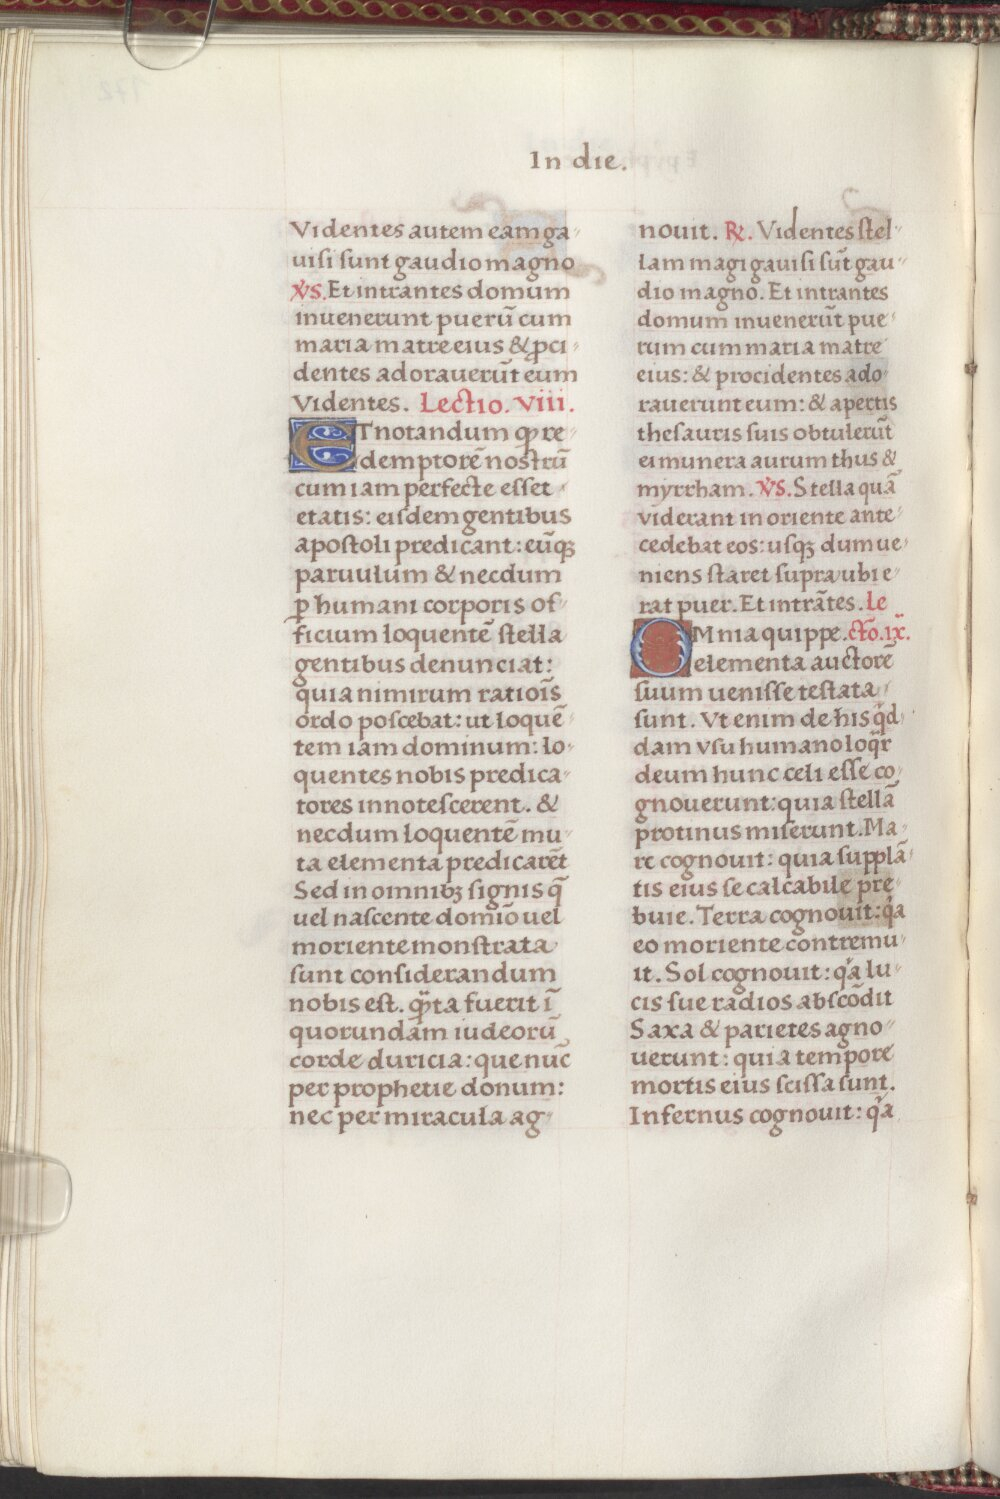 In die.
Videntes autem eam ga-
uisi sunt gaudio magno
V̄S. Et intrantes domum
inuenerunt puerū cum
maria matre eius & ꝓci-
dentes adorauerūt eum
Videntes. Lectio. viii.
ET notandum ꝙ re-
demptorē nostrū
cum iam perfecte esset
etatis: eisdem gentibus
apostoli predicant: eūqꝫ
paruulum & necdum
ꝑ humani corporis of-
ficium loquentē stella
gentibus denunciat:
quia nimirum ratiōis
ordo poscebat: ut loquē-
tem iam dominum: lo-
quentes nobis predica-
tores innotescerent. &
necdum loquentē mu-
ta elementa predicarēt
Sed in omnibꝫ signis q̄
uel nascente domīo uel
moriente monstrata
sunt considerandum
nobis est. ꝙ̄ta fuerit ī
quorundam iudeorū
corde duricia: que nūc
per prophetie donum:
nec per miracula ag-
nouit. ℟. Videntes stel-
lam magi gauisi sūt gau-
dio magno. Et intrantes
domum inuenerūt pue-
rum cum maria matre
eius: & procidentes ado-
rauerunt eum: & apertis
thesauris suis obtulerūt
ei munera aurum thus &
myrrham. V̄S. Stella quā
viderant in oriente ante-
cedebat eos: usqꝫ dum ue-
niens staret supra ubi e-
rat puer. Et intrātes. Le
OMnia quippe. ctō. ix.
elementa auctorē
suum uenisse testata
sunt. Vt enim de his q̄d-
dam vsu humano loq̄r
deum hunc celi esse co-
gnouerunt: quia stellā
protinus miserunt. Ma-
re cognouit: quia supplā-
tis eius se calcabile pre-
buie. Terra cognouit: qͥa
eo moriente contremu-
it. Sol cognouit: qͥa lu-
cis sue radios abscōdit
Saxa & parietes agno-
uerunt: quia tempore
mortis eius scissa sunt.
Infernus cognouit: qͥa